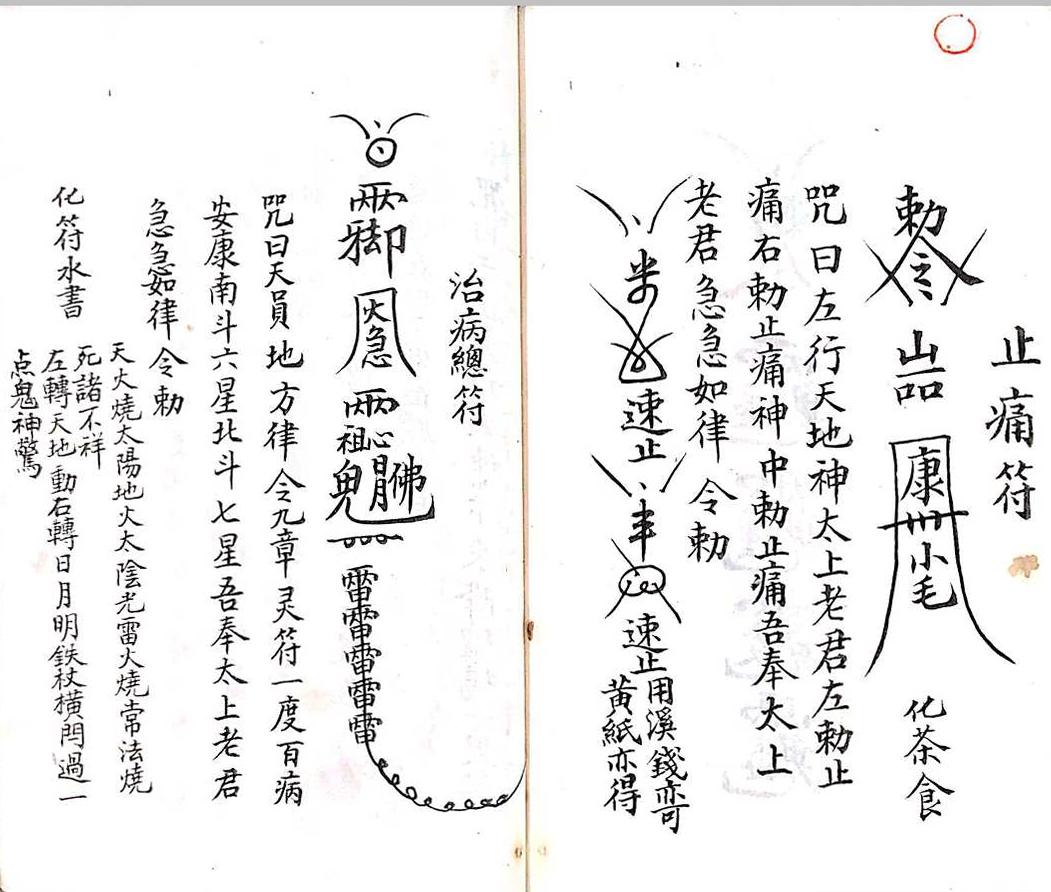 止痛符
勅令
山品
康
小毛
化茶食
咒曰左行天地神太上老君左勅止
痛右勅止痛神中勅止痛吾奉太上
老君急急如律令勅
速止
速止
用溪錢亦可
黃紙亦得
治病總符
火急
祖心
鬼 佛
雷雷雷雷雷
咒曰天員地方律令九章灵符一度百病
安康南斗六星北斗七星吾奉太上老君
急急如律令勅
化符水書
天火燒太陽地火太陰光雷火燒常法燒
死諸不祥
左轉天地動右轉日月明鉄杖橫門過一
点鬼神驚